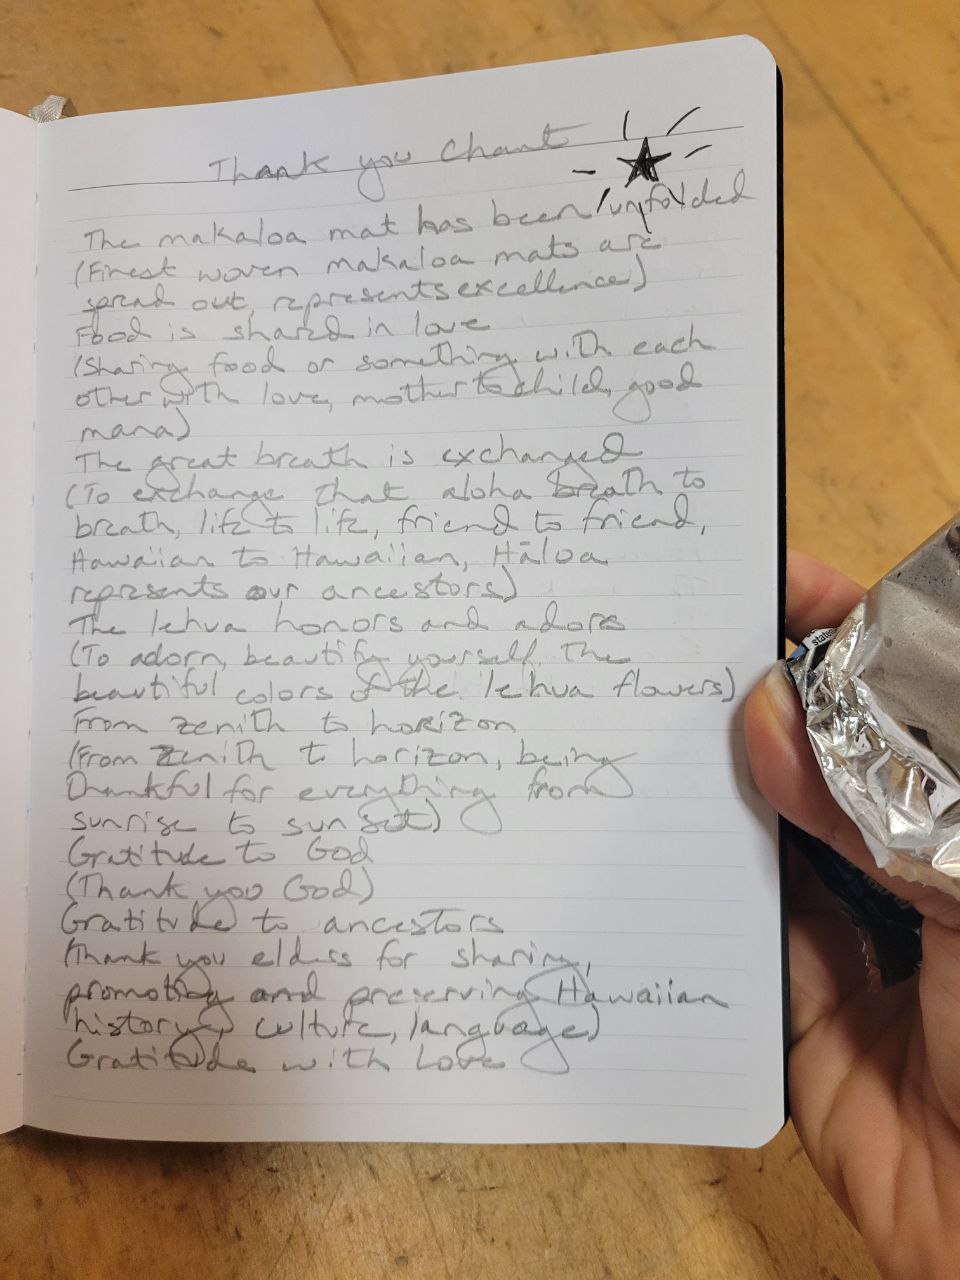 Thank you Chant
The makaloa mat has been unfolded
(Finest woven makaloa mats are
spread out, represents excellence)
Food is shared in love
(Sharing food or something with each
other with love, mother to child, good
mana)
The great breath is exchanged
(To exchange that aloha breath to
breath, life to life, friend to friend,
Hawaiian to Hawaiian, Hāloa
represents our ancestors)
The lehua honors and adores
(To adorn, beautify yourself, the
beautiful colors of the lehua flowers)
From zenith to horizon
(From zenith to horizon, being
thankful for everything from
sunrise to sunset)
Gratitude to God
(Thank you God)
Gratitude to ancestors
(Thank you elders for sharing,
promoting and preserving Hawaiian
history, culture, language)
Gratitude with Love